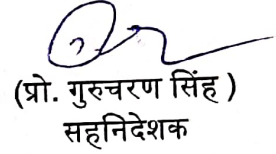 (प्रो. गुरुचरण सिंह )
सहनिदेशक